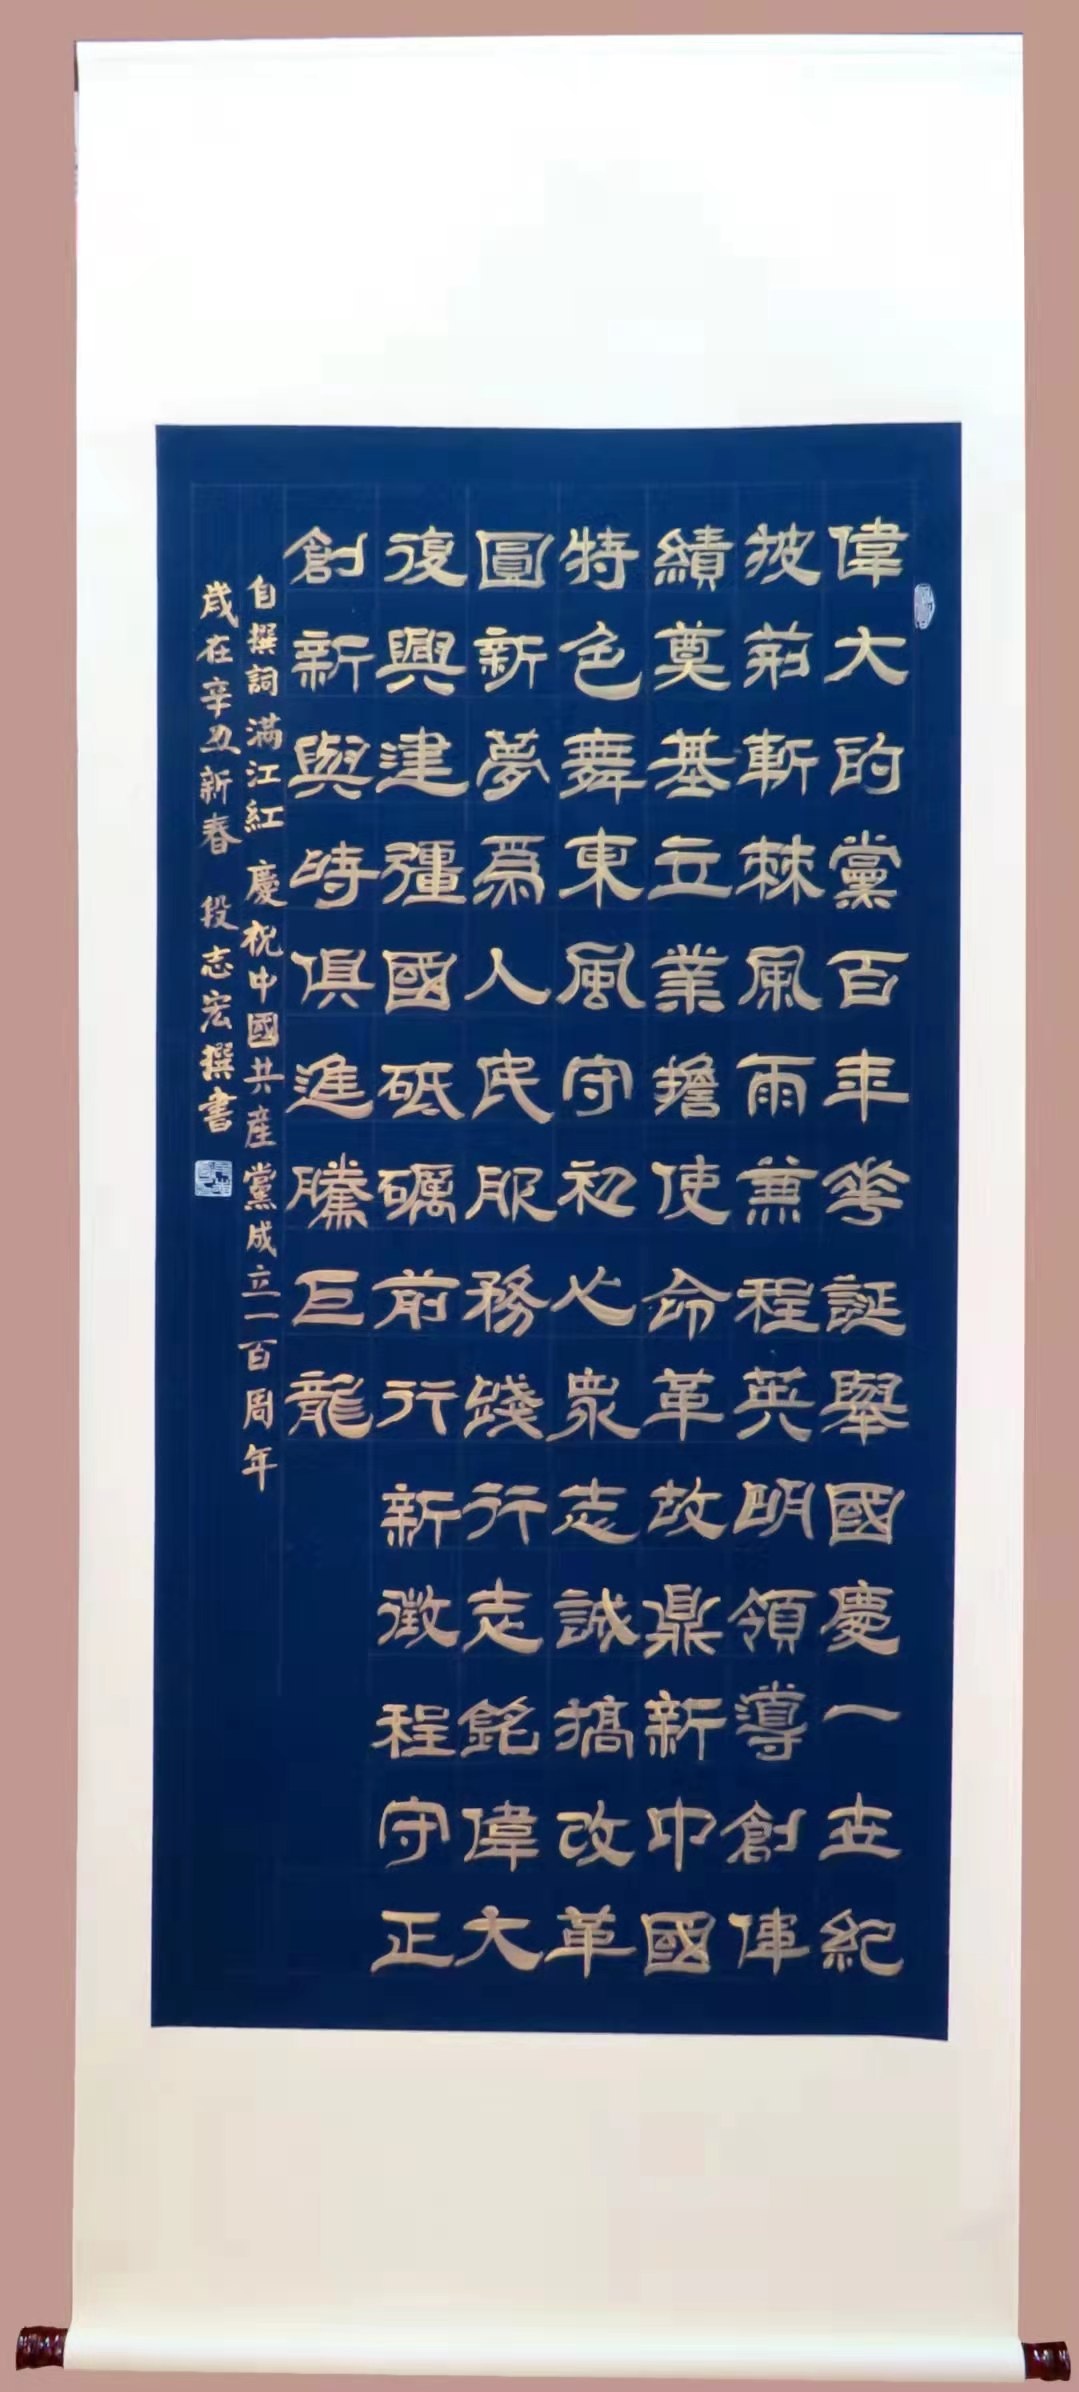 偉大的黨百年華誕舉國慶一世紀
披荊斬棘風雨兼程英明領導創偉
績奠基立業擔使命革故鼎新中國
特色舞東風守初心眾志誠搞改革
圓新夢為人民服務踐行志銘偉大
復興建彊國砥礪前行新徵程守正
創新與時俱進騰巨龍
自撰詞滿江紅慶祝中國共產黨成立一百周年
歲在辛丑新春 段志宏撰書